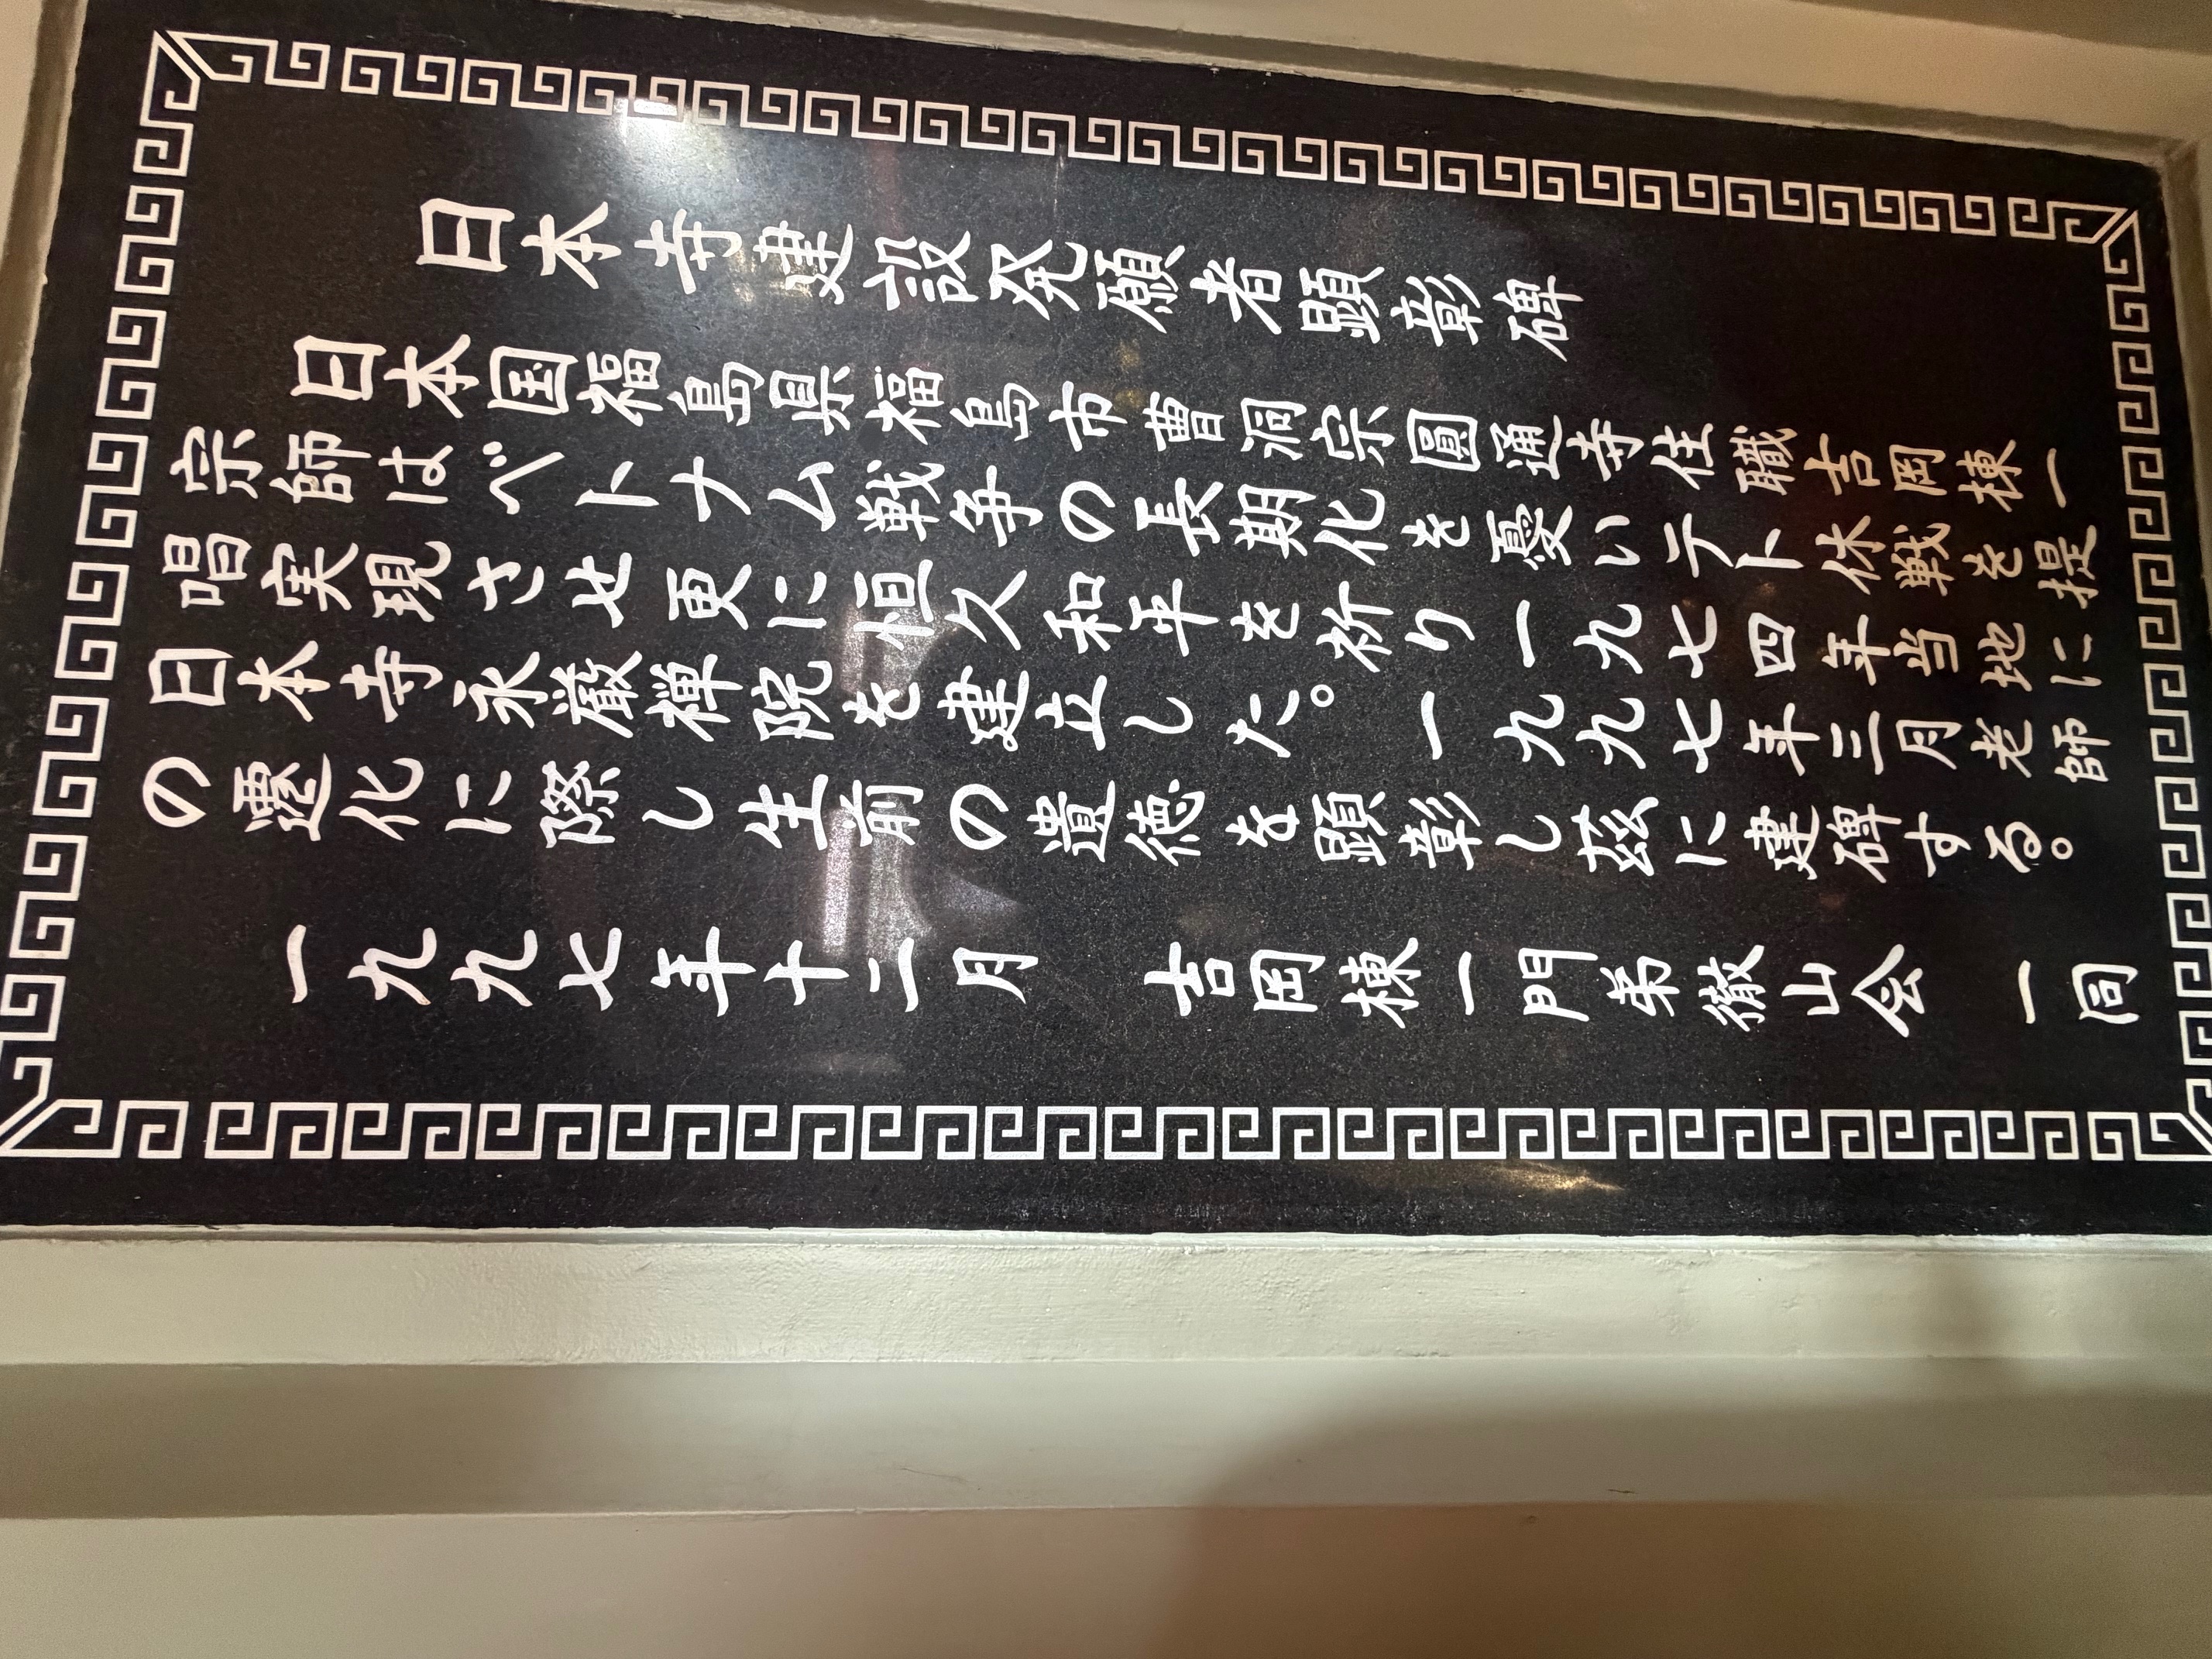 日本寺建設発願者顕彰碑
日本国福島県福島市曹洞宗圓通寺住職吉岡棟一
宗師はベトナム戦争の長期化を憂いテト休戦を提
唱実現させ更に恒久和平を祈り一九七四年当地に
日本寺永厳禅院を建立した。一九九七年三月老師
の遷化に際し生前の遺徳を顕彰し茲に建碑する。
一九九七年十二月 吉岡棟一門弟徹山会 一同